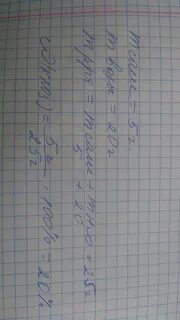 m соли = 5г
m воды = 20г
m р-ра = m соли + m H₂O = 25г
5 + 20
ω(    ) = 5г / 25г · 100% = 20%